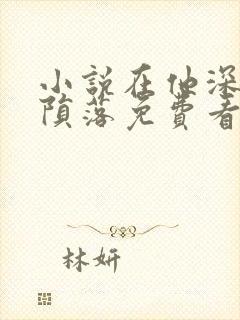 小说在他深
陨落免费看
林妍